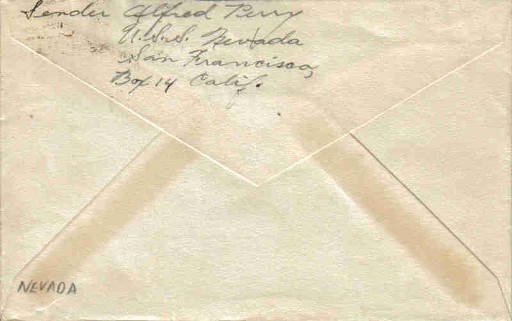 Sender Alfred Perry
U.S.S. Nevada
San Francisco,
Box 14 Calif.
NEVADA